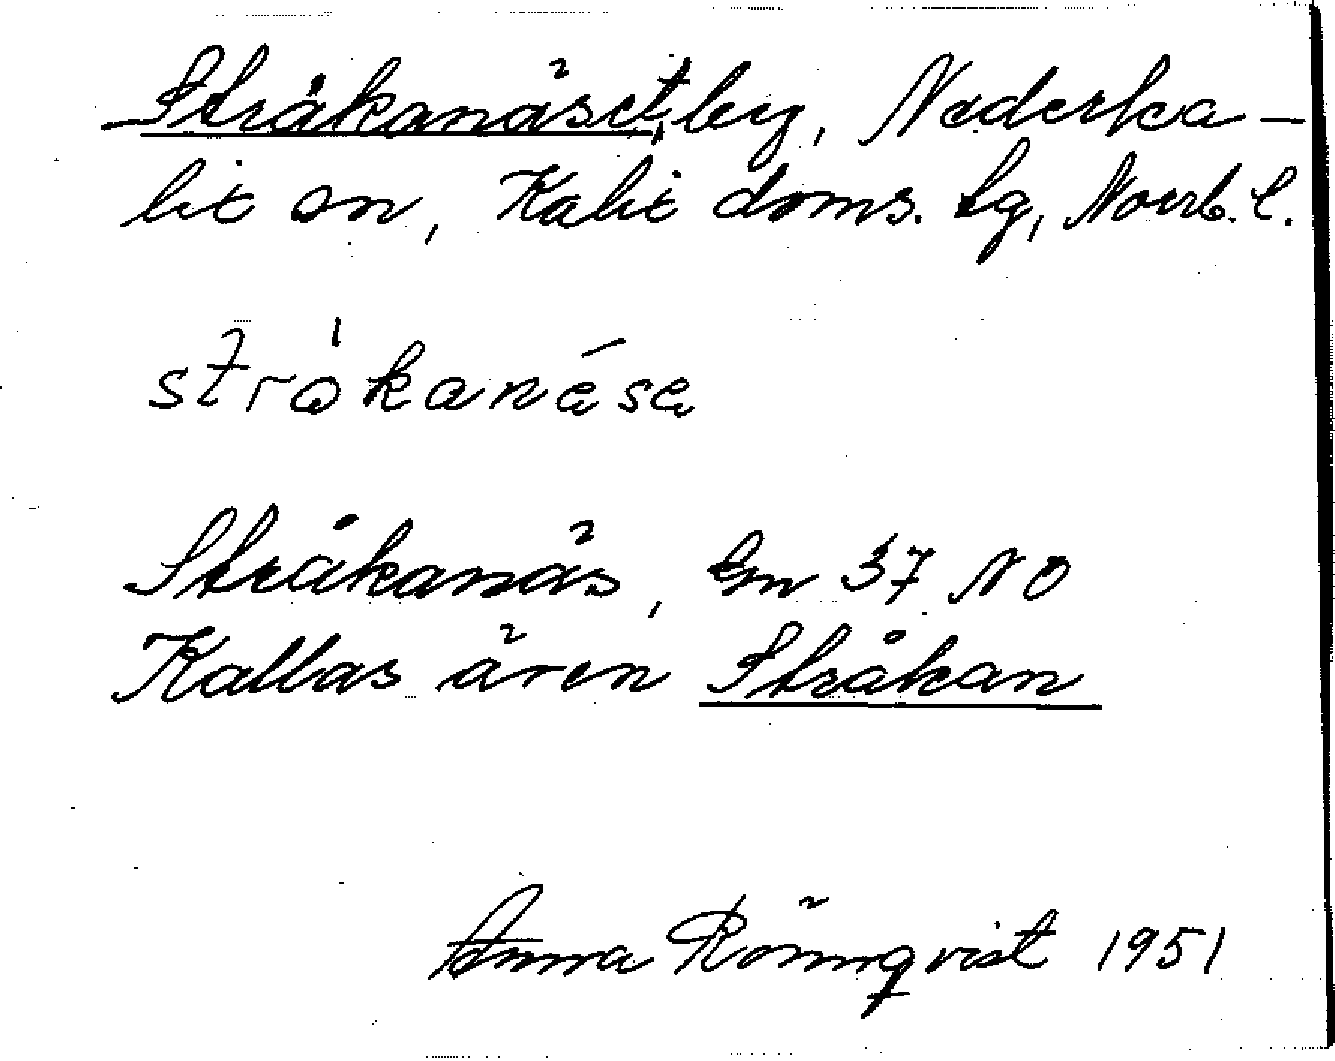 Stråkanäset, by, Nederka-
lix sn, Kalix doms. tg, Norrb. l.
strå̀kanése
Stråkanäs, Gm 37 NO
Kallas även Stråkan
Anna Rönnqvist 1951